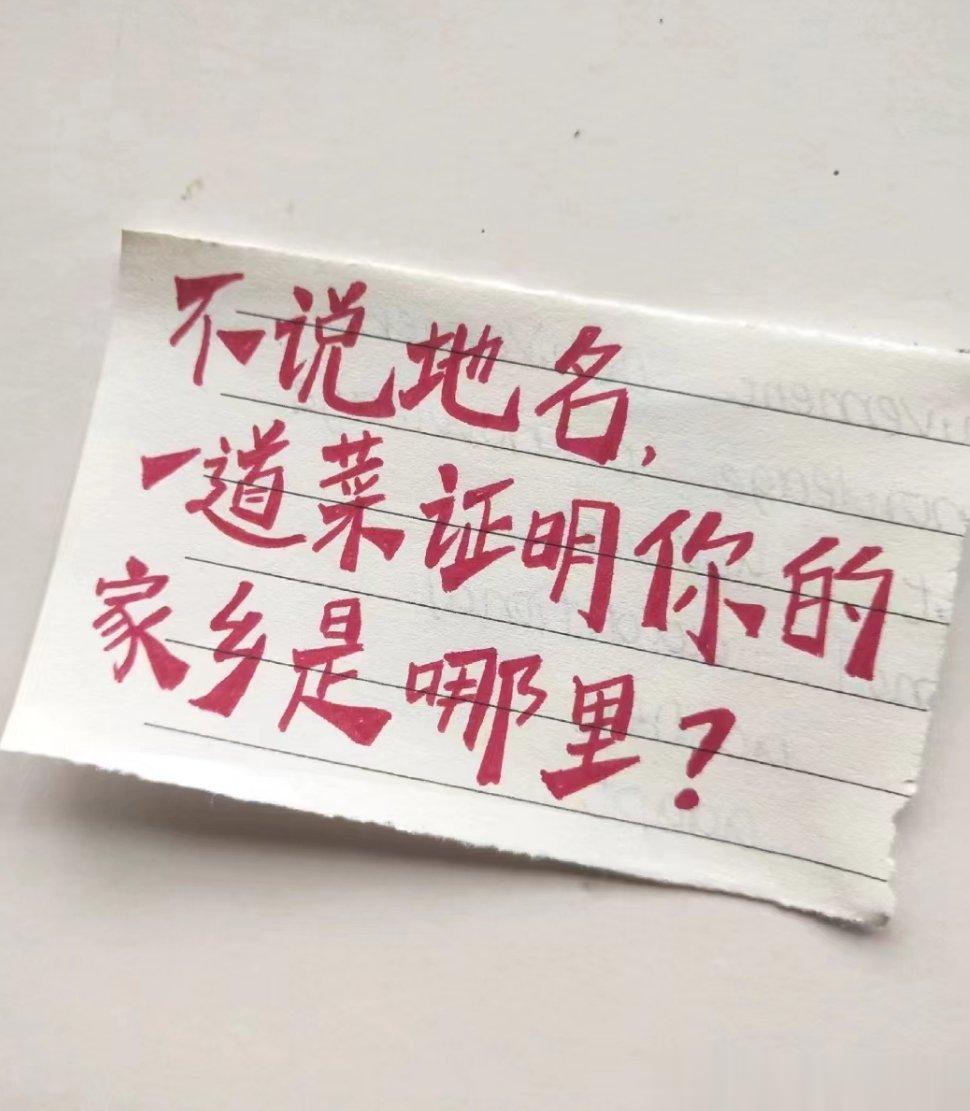 不说地名,
一道菜证明你的
家乡是哪里?